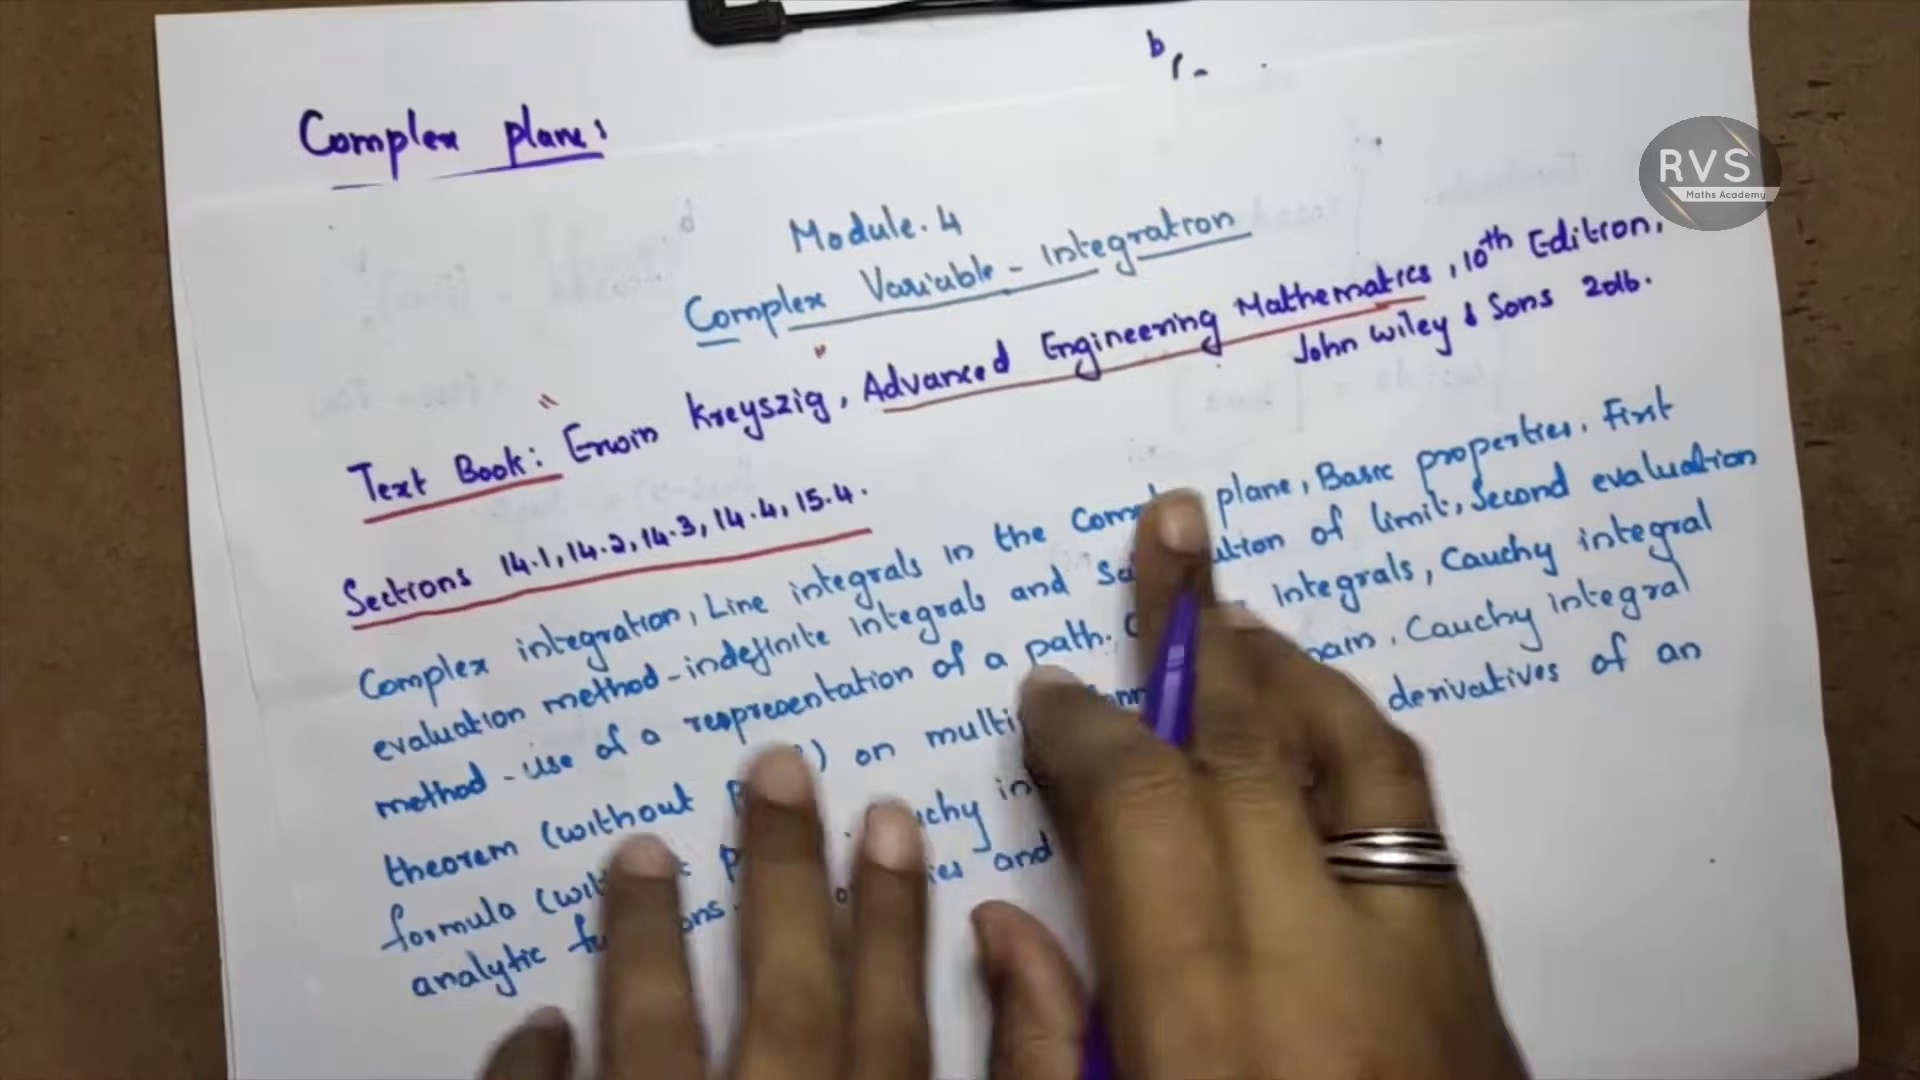 Complex plane:
RVS
Maths Academy
Module.4
Complex Variable - Integration
Text Book: Erwin Kreyszig, Advanced Engineering Mathematics, 10th Edition,
John Wiley & Sons 2016.
Sections 14.1, 14.2, 14.3, 14.4, 15.4.
Complex integration, Line integrals in the plane, Basic properties. First
evaluation method - indefinite integrals and of limit, Second evaluation
method - use of a representation of a path. integrals, Cauchy integral
theorem (without on Cauchy integral
formula derivatives of an
analytic and